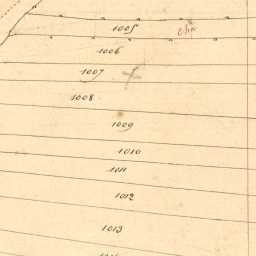 1005
1006
1007
1008
1009
1010
1011
1012
1013